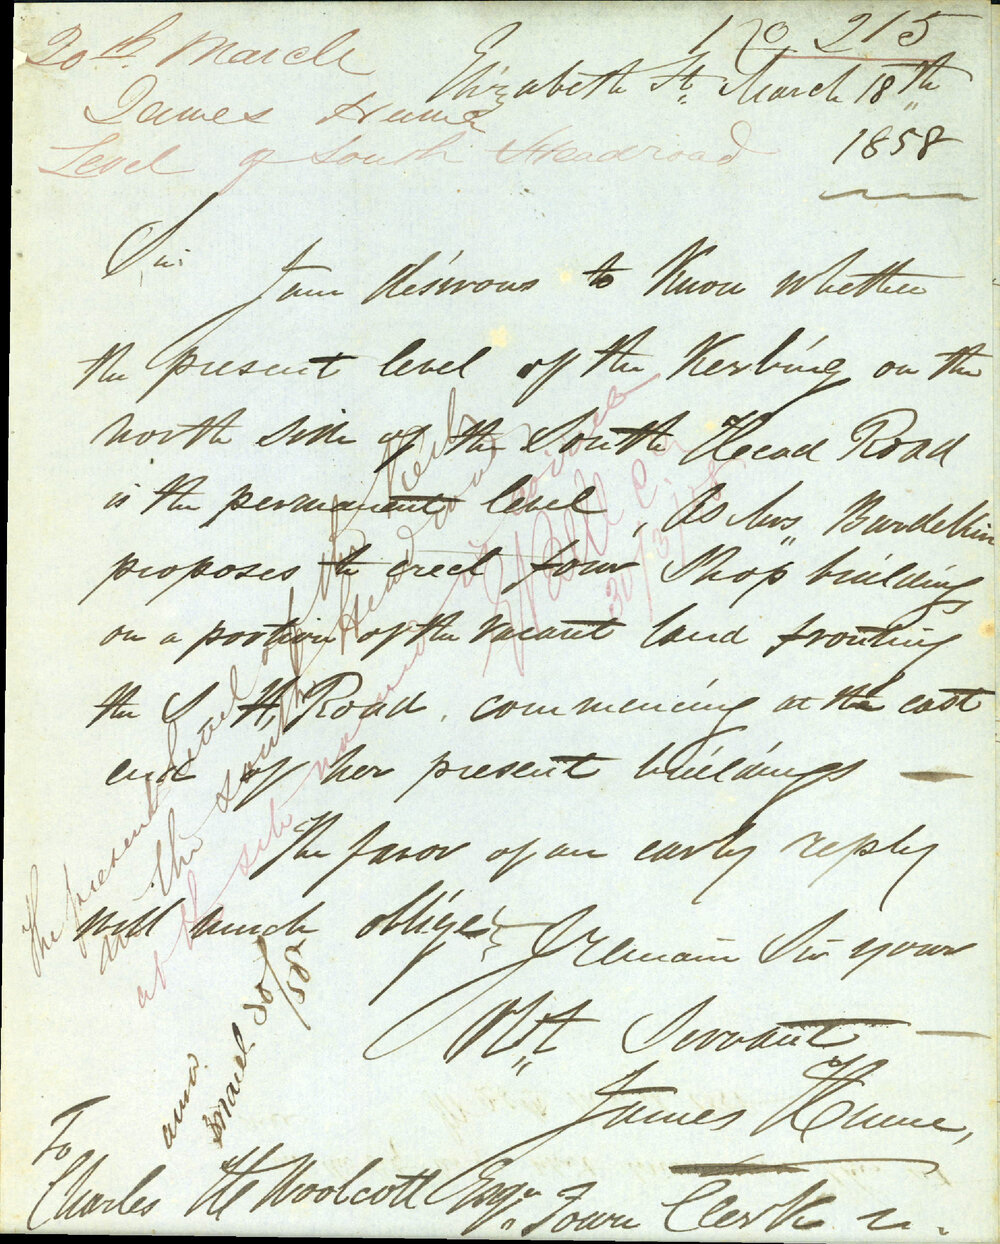 No 215
20th March
James Hume
Level of South Head road
Elizabeth St. March 18th
1858
Sir
I am desirous to Know whether
the present level of the Kerbing on the
north side of the South Head Road
is the permanent level, As Mrs Burdekin
proposes to erect four Shop buildings
on a portion of the vacant land fronting
the S. H. Road, commencing at the east
end of her present buildings —
The favor of an early reply
will much oblige
I remain Sir your
Obt Servant
James Hume,
To
Charles H Woolcott Esqr Town Clerk
The present level of the Kerb
on the South Head road
at the side named is
30/3/58
ansd.
30 March 30/58